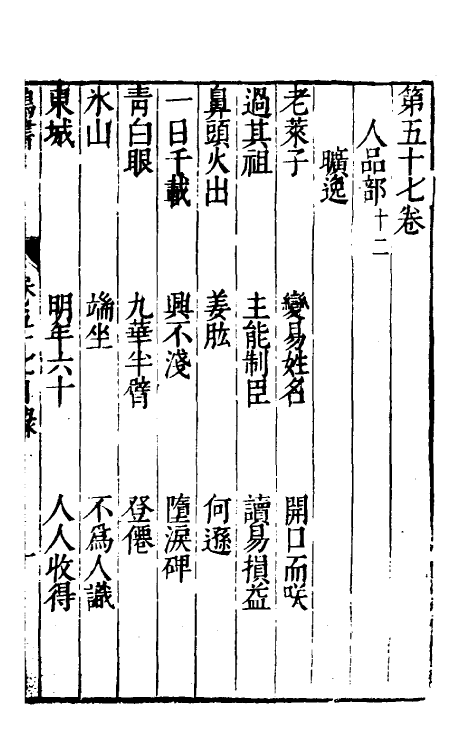 第五十七卷
人品部十二
曠逸
老萊子　變易姓名　開口而咲
過其祖　主能制臣　讀易損益
鼻頭火出　姜肱　何遜
一日千載　興不淺　墮淚碑
青白眼　九華半臂　登僊
氷山　端坐　不爲人識
東城　明年六十　人人收得